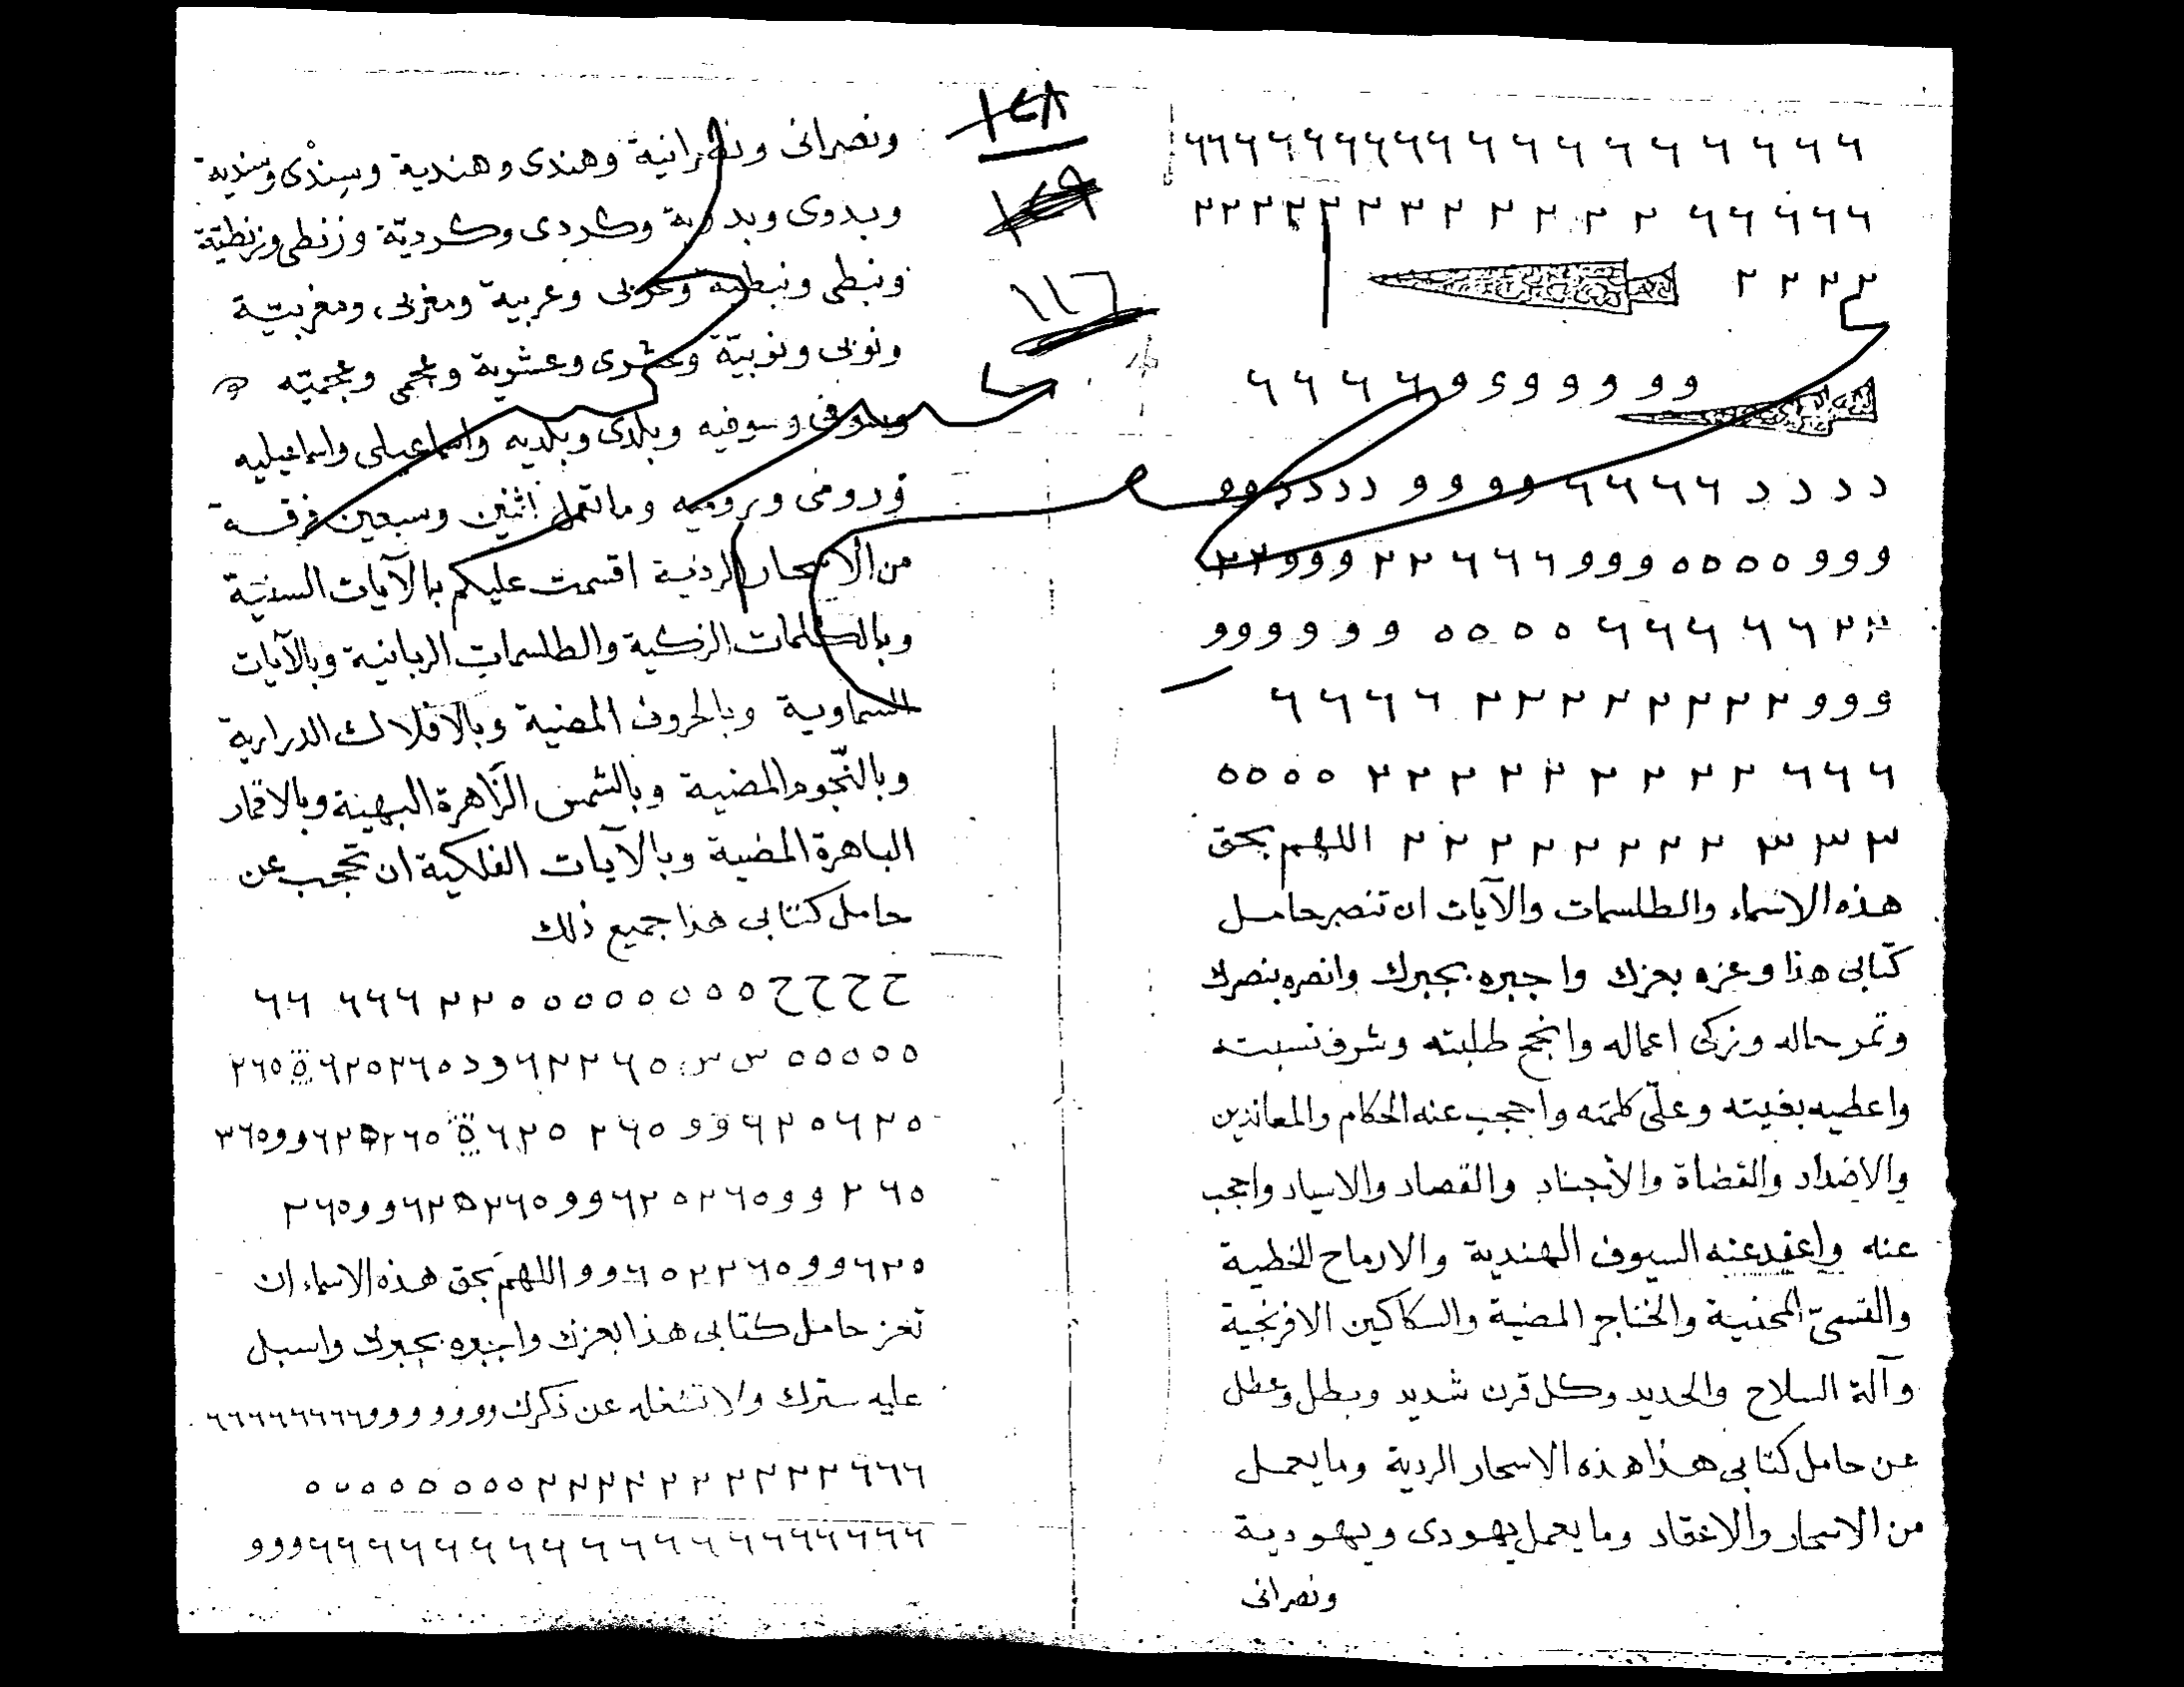 ٦٦٦٦٦٦٦٦٦٦٦٦٦٦٦٦٦٦
٦٦٦٦٦٢٢٢٢٢٢٢٢٢٢٢٢
٢٢٢٢
وووووو٦٦٦٦
دددد٦٦٦٦وووودددددوو
ووو٥٥٥٥ووو٦٦٦٢٢ووو٢٢
٢٢٦٦٦٦٦٥٥٥٥وووووو
ووو٢٢٢٢٢٢٢٢٦٦٦٦
٦٦٦٢٢٢٢٢٢٢٢٢٥٥٥٥
٣٣٣٢٢٢٢٢٢٢٢ اللهم بحق
هذه الاسماء والطلسمات والآيات ان تنصر حامل
كتابى هذا وعزه بعزك واجبره بجبرك وانصره بنصرك
وتمر حاله وزكى اعماله وانجح طلبته وشرف نسبته
واعطيه بغيته وعلّى كلمته واحجب عنه الحكام والمعاندين
والاضداد والقضاة والأجناد والقصاد والاسياد واحجب
عنه واعقد عنه السيوف الهندية والارماح الخطية
والقسىّ المحنية والخناجر المضية والسكاكين الافرنجية
وآلة السلاح والحديد وكل قرن شديد وبطل وعطل
عن حامل كتابى هذا هذه الاسحار الردية وما يعمل
من الاسحار والاعقاد وما يعمل يهودى ويهودية
ونصرانى
١٤٨
١٤٩
١١٦
ونصرانى ونصرانية وهندى وهندية وسِندْى وسندية
وبدوى وبدوية وكردى وكردية وزنطى وزنطيّة
ونبطى ونبطية وعربى وعربية ومغربى ومغربيّة
ونوبى ونوبيّة وعشرى وعشوية وعجمى وعجميّه
وسوفى وسوفيه وبلدى وبلديه واسماعيلى واسماعيليه
ورومى وروميه وما تعمل اثنين وسبعين فرقة
من الاسحار الردية اقسمت عليكم بالآيات السنيّة
وبالكلمات الزكية والطلسمات الربانية وبالآيات
السماوية وبالحروف المضية وبالافلاك الدرارية
وبالنّجوم المضية وبالشمس الزاهرة البهية وبالاقمار
الباهرة المضية وبالآيات الفلكية ان تحجب عن
حامل كتابى هذا جميع ذلك
ححح٥٥٥٥٥٥٥٥٥٢٢٦٦٦٦٦
٥٥٥٥٥ س س ٥٦٢٢٦ود٥٦٢٥٢٦٥٢٦٥
٥٢٦٥٢٦وو٥٦٢٥٢٦٥٢٦٥وو٣٦٥
٥٦٢وو٥٦٢٥٢٦وو٥٦٢٥٢٦وو٥٦٢
٥٢٦وو٥٦٢٢٥٦وو اللهم بحق هذه الاسماء ان
تعز حامل كتابى هذا بعزك واجبره بجبرك واسبل
عليه سترك ولا تشغله عن ذكرك وووووووو٦٦٦٦٦٦٦٦
٦٦٦٢٢٢٢٢٢٢٢٢٢٢٥٥٥٥٥٥٥٥
٦٦٦٦٦٦٦٦٦٦٦٦٦٦٦٦٦ووو